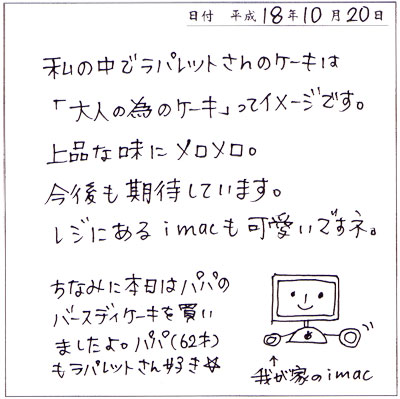 日付 平成18年10月20日
私の中でラパレットさんのケーキは
「大人の為のケーキ」ってイメージです。
上品な味にメロメロ。
今後も期待しています。
レジにあるimacも可愛いですネ。
ちなみに本日はパパの
バースディケーキを買い
ましたよ。パパ(62才)
もラパレットさん好き☆
↑
我が家のimac